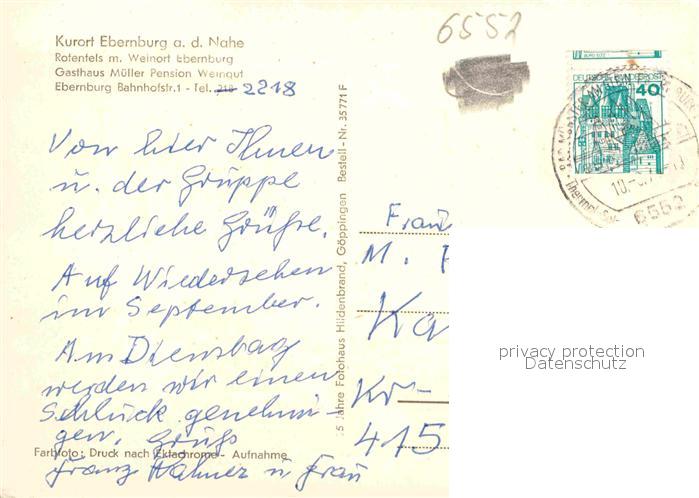 6552
Kurort Ebernburg a. d. Nahe
Rotenfels m. Weinort Ebernburg
Gasthaus Müller Pension Weingut
Ebernburg Bahnhofstr.1 - Tel. 218 2218
Von hier Ihnen
u. der Gruppe
herzliche Grüße.
Auf Wiedersehen
im September.
Am Dienstag
werden wir einen
Schluck genehmi-
gen. Gruß
Franz u Frau
Farbfoto: Druck nach Ektachrome - Aufnahme
Jahre Fotohaus Hildenbrand, Göppingen Bestell-Nr. 35771 F
DEUTSCHE BUNDESPOST
40
6552
Frau
M.
Ka
Kr-
415
privacy protection
Datenschutz